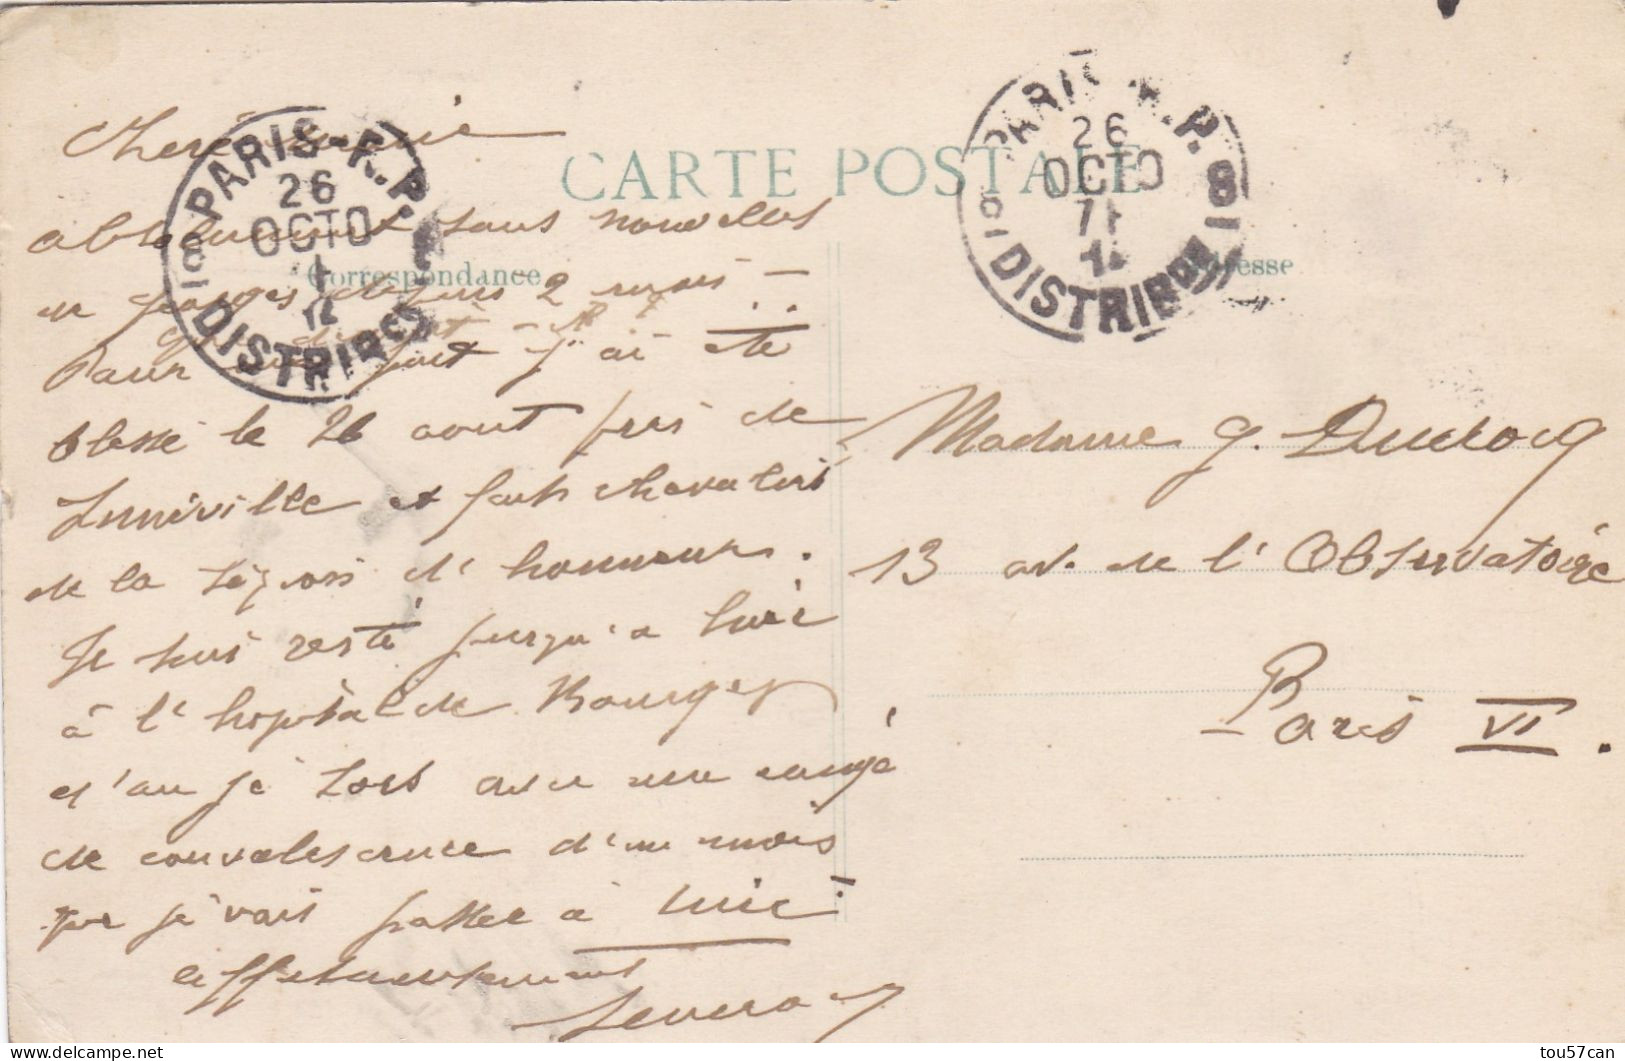 CARTE POSTALE
Correspondance
PARIS - R.P.
26
OCTO
DISTRIBON
PARIS R.P. 8
26
OCTO
DISTRIBON
Chère
absolument sans nouvelles
de Georges depuis 2 mois
Pour j'ai été
blessé le 26 aout près de
Lunéville et fait chevalier
de la Légion d'honneur.
Je suis resté jusqu'à hier
à l'hôpital de Bourges
d'où je sors avec un congé
de convalescence d'un mois
que je vais passer à
affectueusement
Madame G. Ducrocq
13 av. de l'Observatoire
Paris VI.
tou57can